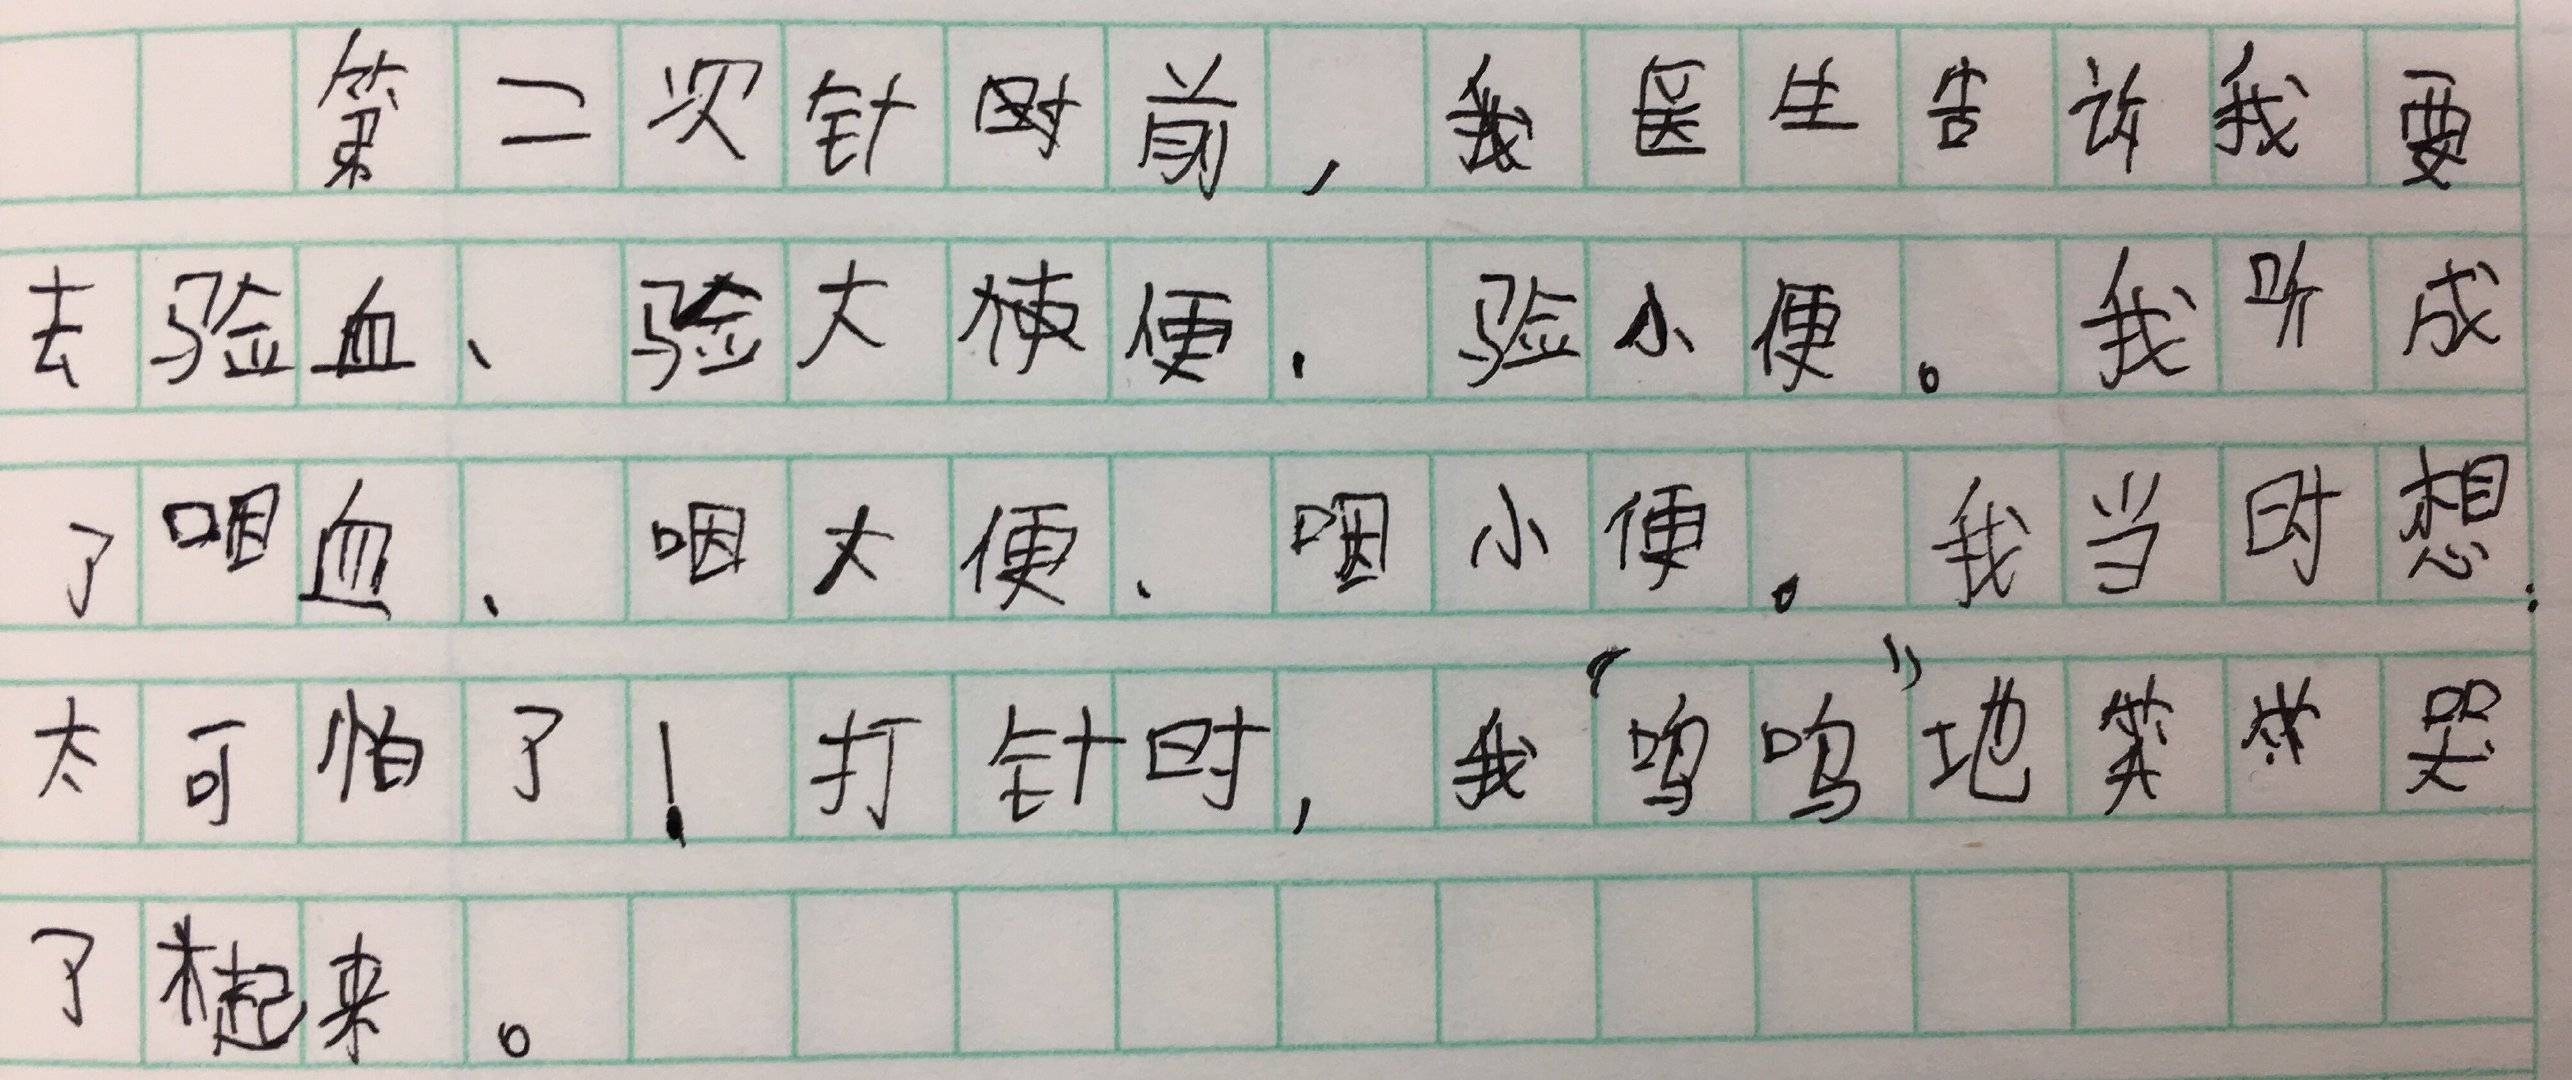 第二次针时前，我医生告诉我要
去验血、验大便、验小便。我听成
了咽血、咽大便、咽小便。我当时想：
太可怕了！打针时，我“呜呜”地哭
了起来。